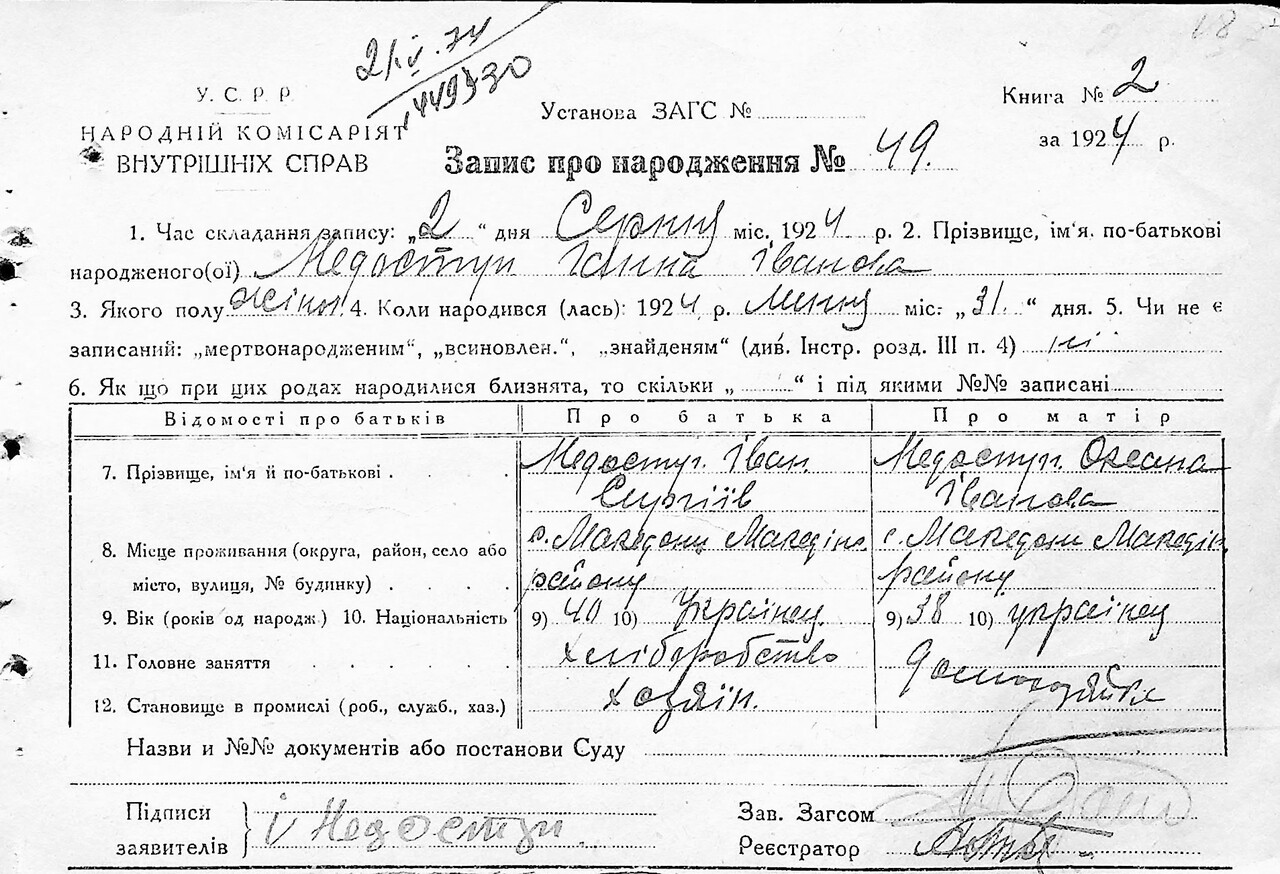 18
2/IV.74
449330
У. С. Р. Р
НАРОДНІЙ КОМІСАРІЯТ
ВНУТРІШНІХ СПРАВ
Установа ЗАГС №
Книга № 2
за 1924 р.
Запис про народження № 49.
1. Час складання запису: „2" дня Серпня міс. 1924 р. 2. Прізвище, ім'я, по-батькові
народженого(ої) Недоступ Ганна Іванова
3. Якого полу жіноч. 4. Коли народився (лась): 1924 р. Липня міс. „31" дня. 5. Чи не є
записаний: „мертвонародженим", „всиновлен.", „знайденям" (див. Інстр. розд. III п. 4) ні
6. Як що при цих родах народилися близнята, то скільки „ " і під якими №№ записані
Відомості про батьків Про батька Про матір
7. Прізвище, ім'я й по-батькові Недоступ Іван Недоступ Оксана
Сергіїв Іванова
8. Місце проживання (округа, район, село або с. Македони Македонс. с. Македони Македін.
місто, вулиця, № будинку) району району
9. Вік (років од народж) 10. Національність 9) 40 10) Українец 9) 38 10) українец
11. Головне заняття Хліборобство домохозяйка
12. Становище в промислі (роб., служб., хаз.) хозяін.
Назви и №№ документів або постанови Суду
Підписи
заявителів } і Недоступ
Зав. Загсом
Реєстратор